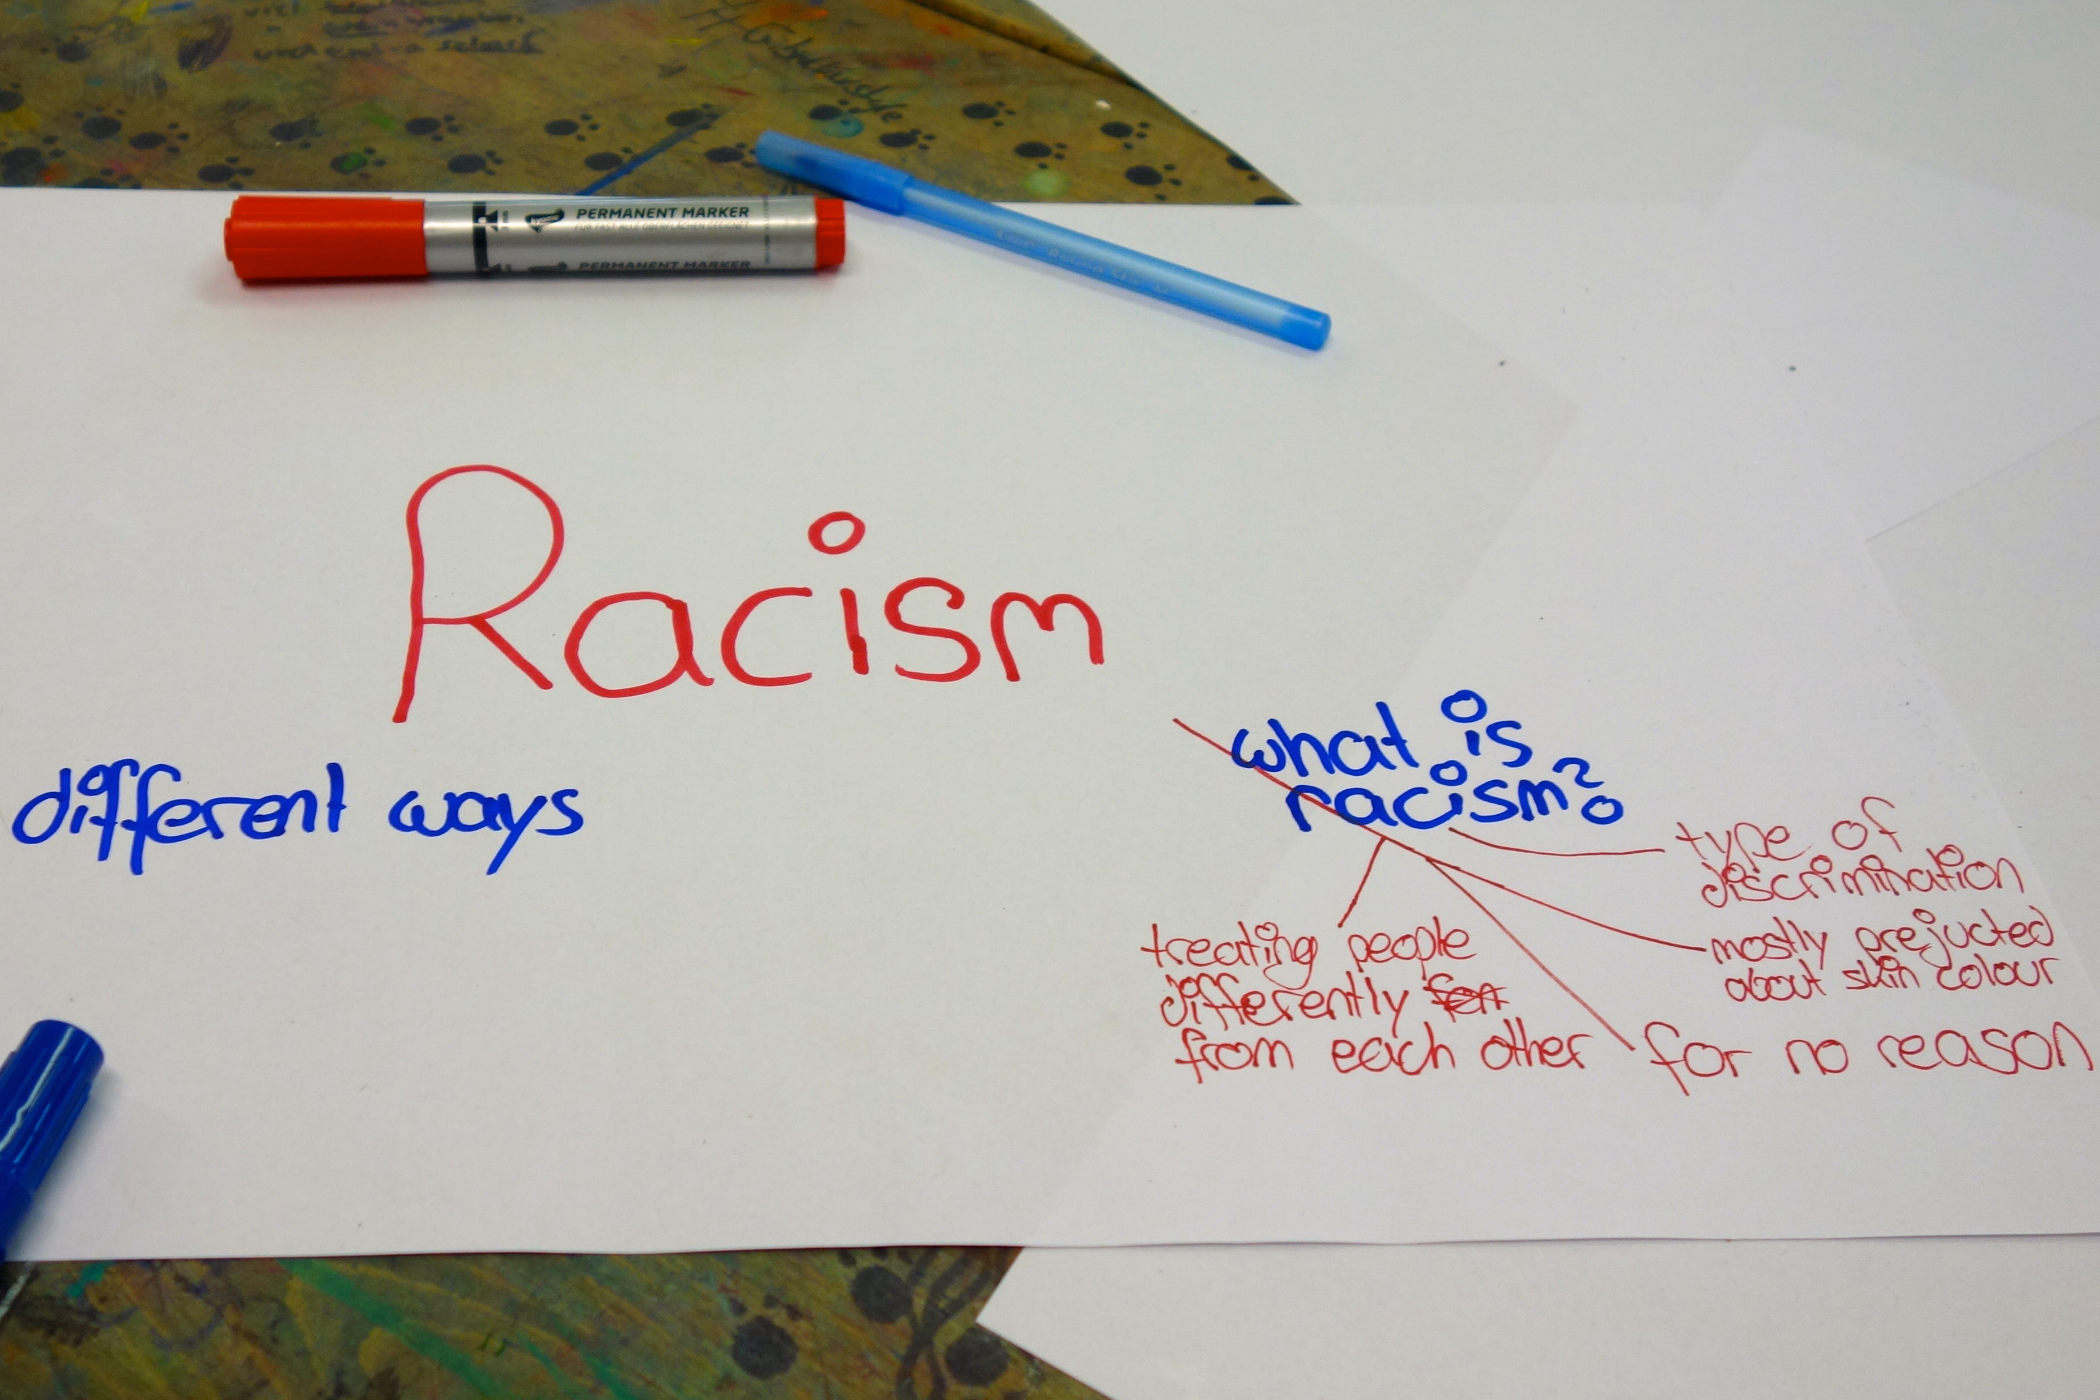 PERMANENT MARKER
FÜR FAST ALLE OBERFLÄCHEN GEEIGNET
PERMANENT MARKER
Racism
different ways
what is
racism?
type of
discrimination
mostly prejucted
about skin colour
for no reason
treating people
differently
from each other